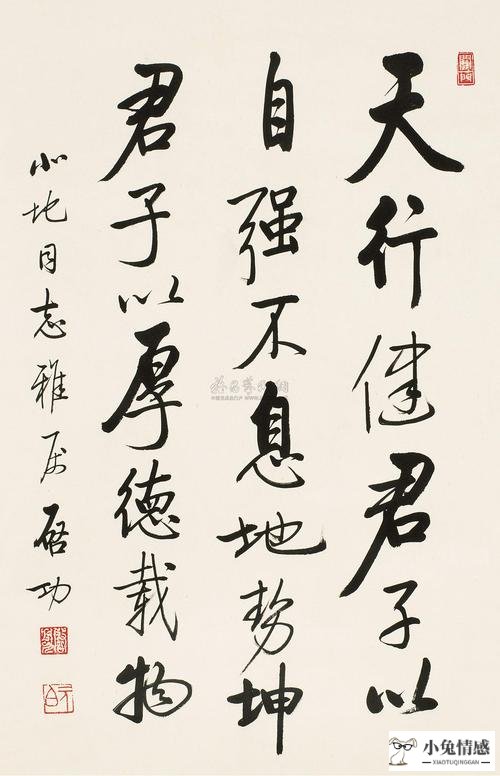 天行健君子以
自强不息地势坤
君子以厚德载物
地同志雅属 启功
小兔情感
XIAOTUQINGGAN